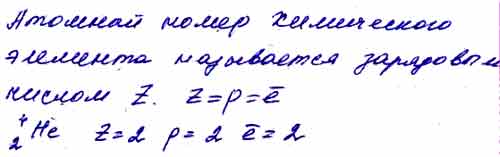 Атомный номер химического
элемента называется зарядовым
числом Z. Z=p=ē
⁴₂He Z=2 p=2 ē=2